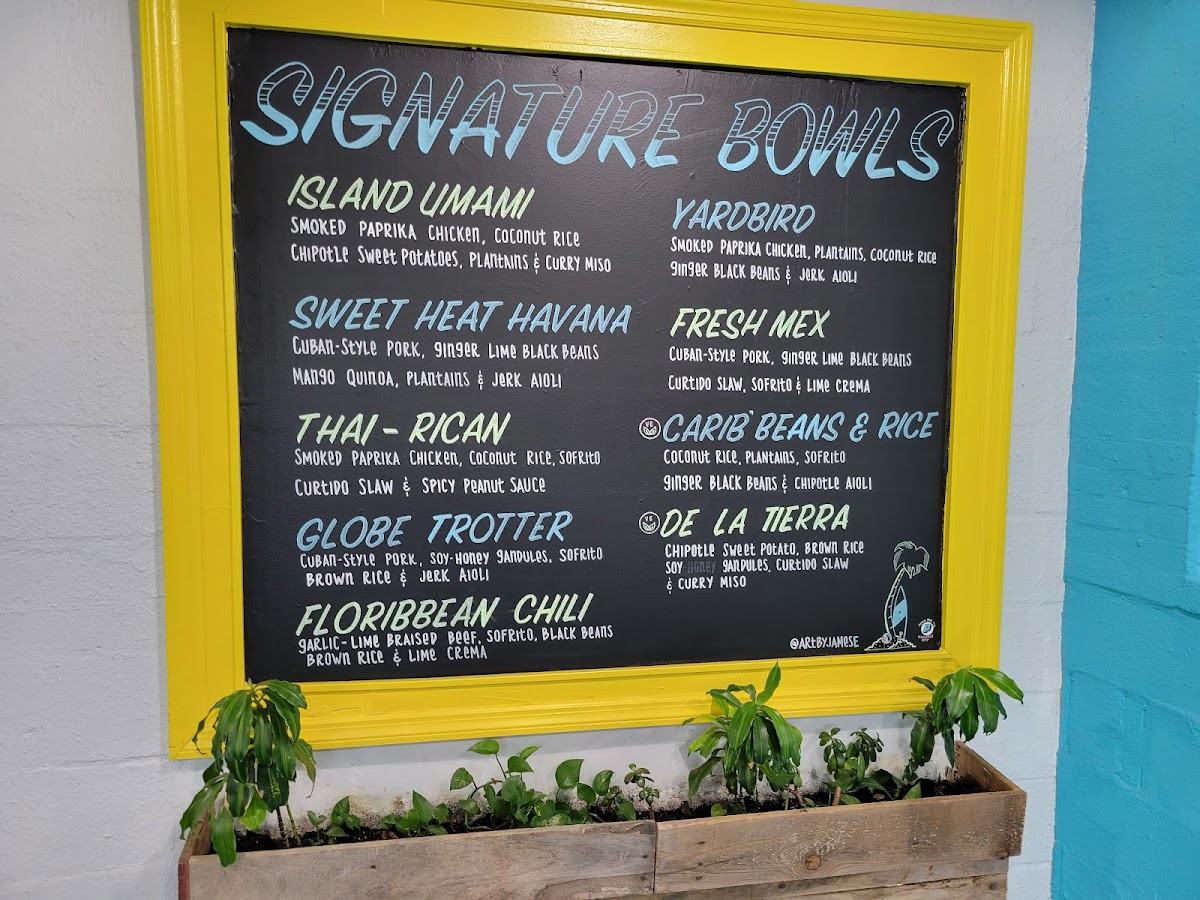 SIGNATURE BOWLS
ISLAND UMAMI
SMOKED PAPRIKA CHICKEN, COCONUT RICE
CHIPOTLE SWEET POTATOES, PLANTAINS & CURRY MISO
SWEET HEAT HAVANA
CUBAN-STYLE PORK, GINGER LIME BLACK BEANS
MANGO QUINOA, PLANTAINS & JERK AIOLI
THAI-RICAN
SMOKED PAPRIKA CHICKEN, COCONUT RICE, SOFRITO
CURTIDO SLAW & SPICY PEANUT SAUCE
GLOBE TROTTER
CUBAN-STYLE PORK, SOY-HONEY GANDULES, SOFRITO
BROWN RICE & JERK AIOLI
FLORIBBEAN CHILI
GARLIC-LIME BRAISED BEEF, SOFRITO, BLACK BEANS
BROWN RICE & LIME CREMA
YARDBIRD
SMOKED PAPRIKA CHICKEN, PLANTAINS, COCONUT RICE
GINGER BLACK BEANS & JERK AIOLI
FRESH MEX
CUBAN-STYLE PORK, GINGER LIME BLACK BEANS
CURTIDO SLAW, SOFRITO & LIME CREMA
VE CARIB'BEANS & RICE
COCONUT RICE, PLANTAINS, SOFRITO
GINGER BLACK BEANS & CHIPOTLE AIOLI
VE DE LA TIERRA
CHIPOTLE SWEET POTATO, BROWN RICE
SOY HONEY GANDULES, CURTIDO SLAW
& CURRY MISO
@ARTBYJAMESE